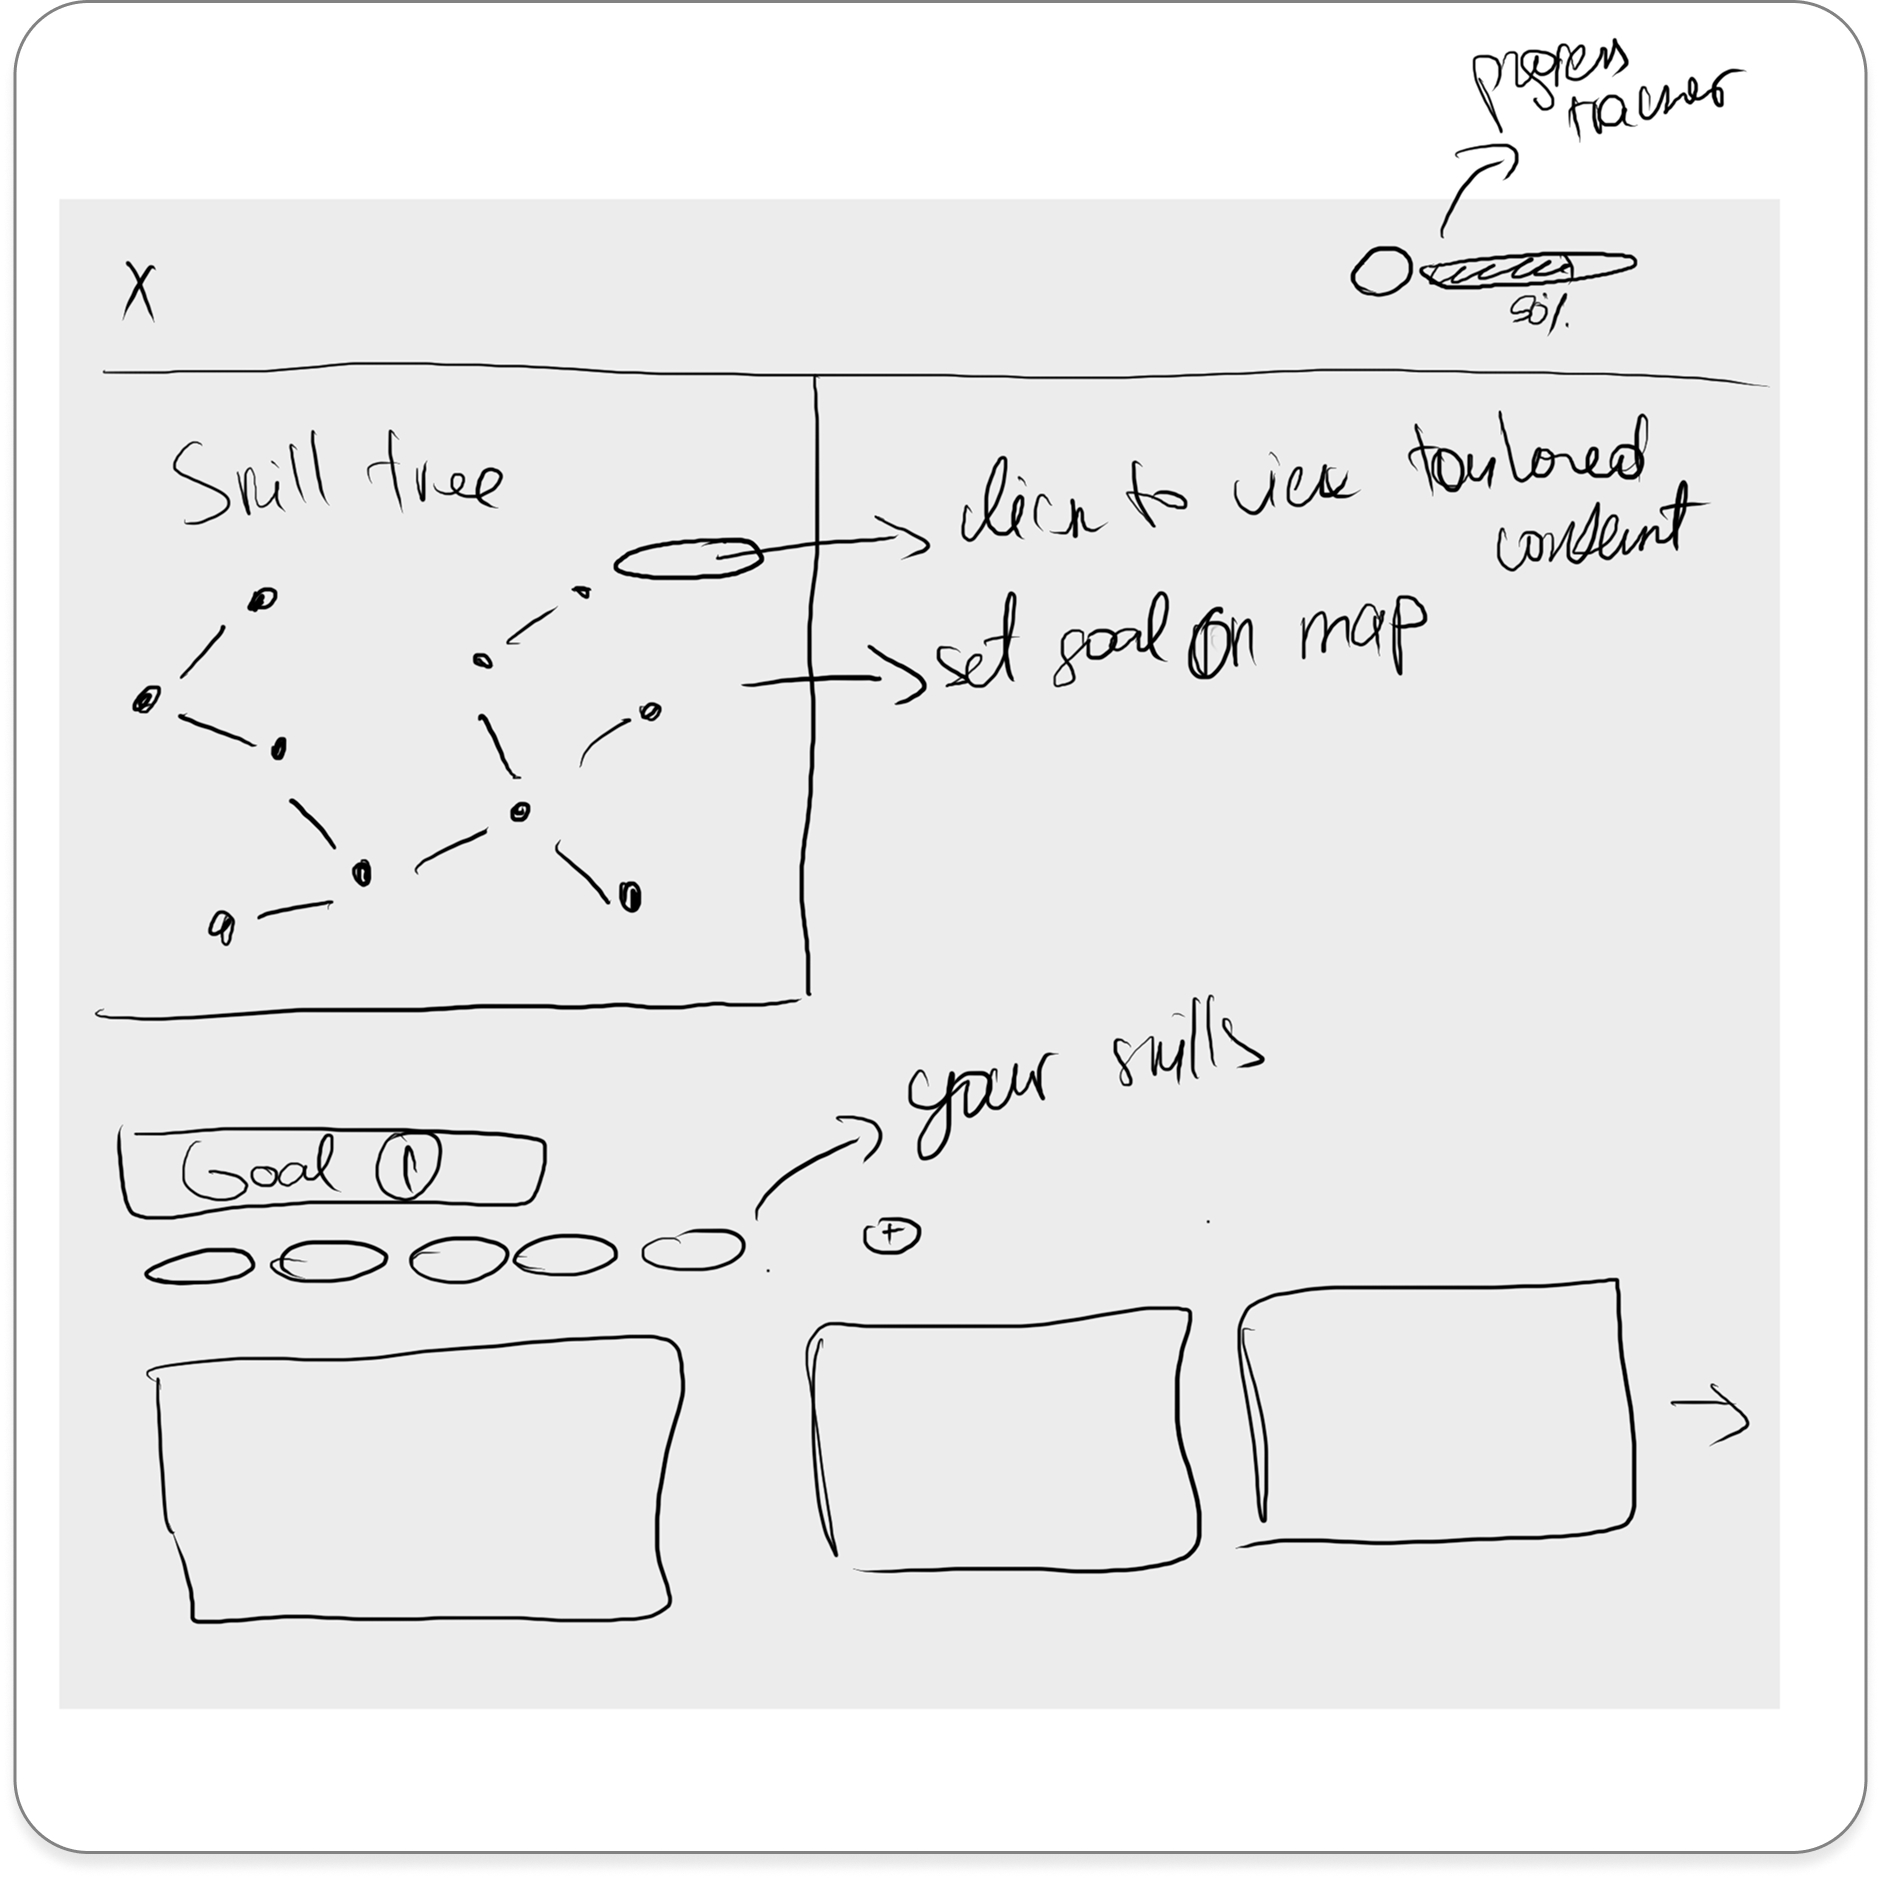 progress
tracker
X
Skill tree
click to view tailored
content
set goal on map
your skills
Goal 1
+